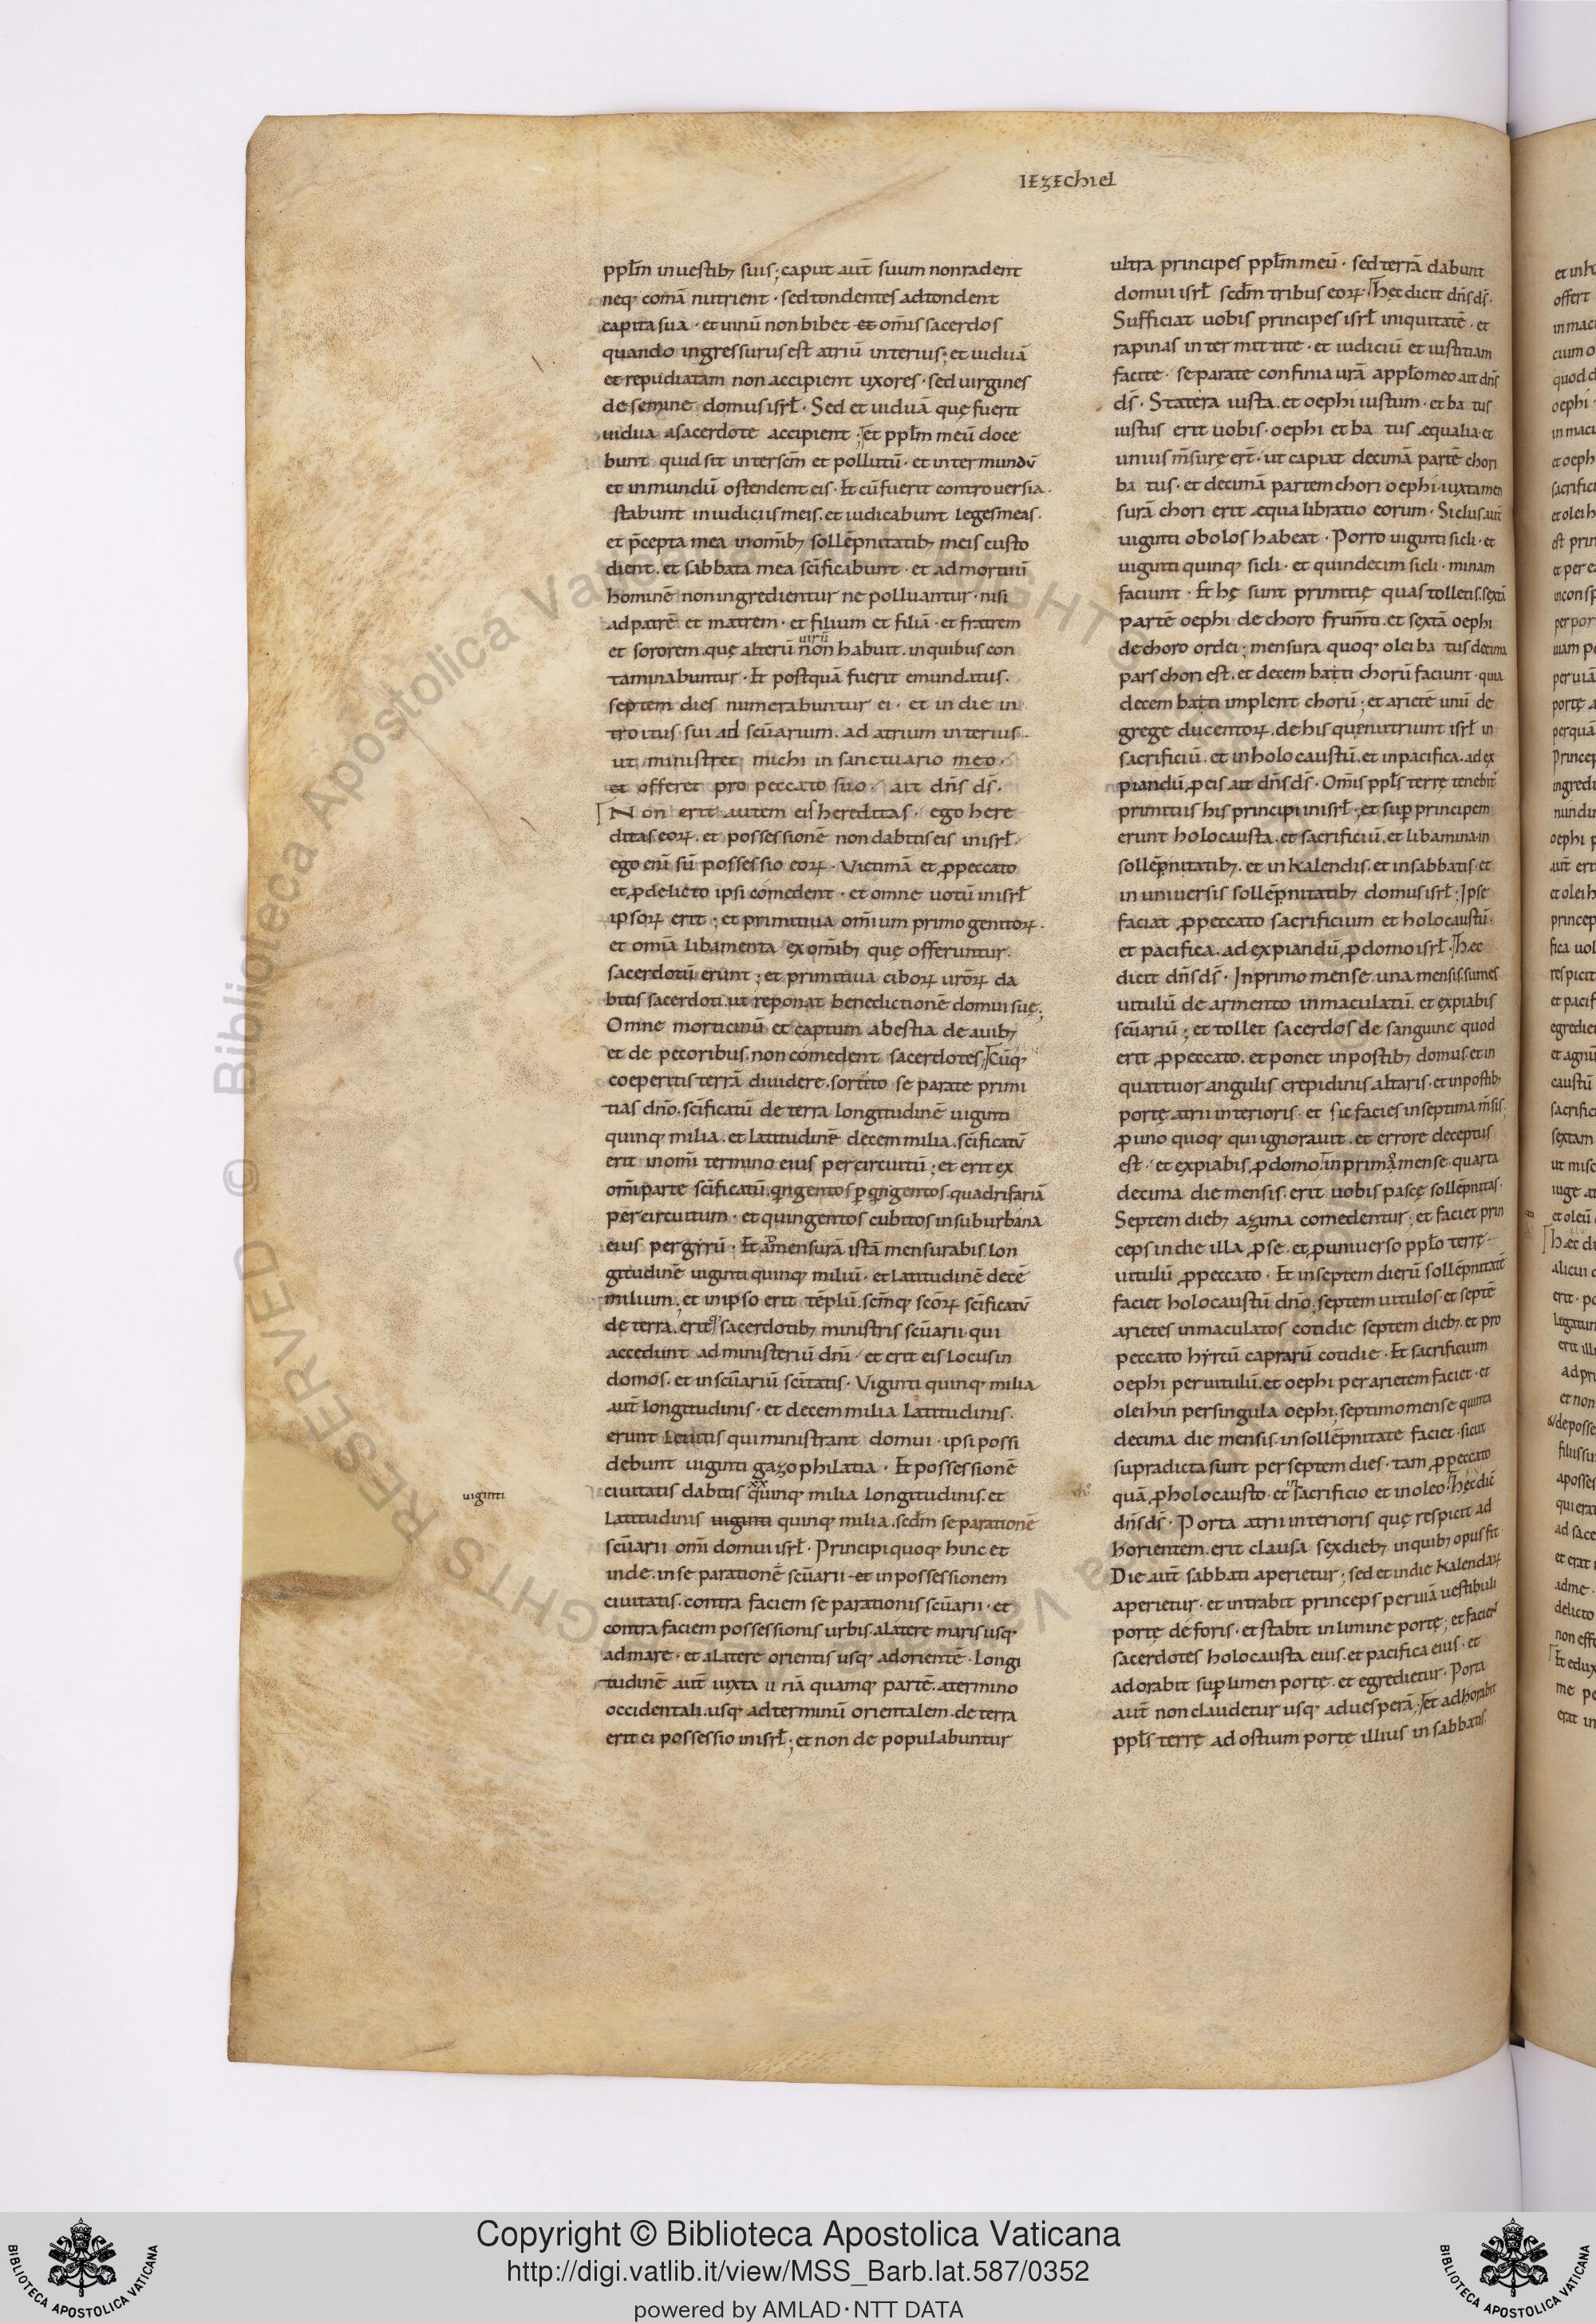 IEzEchiel
pplm̄ inuestib; suis; caput aut̄ suum nonradent
neq; comā nutrient · sedtondentes adtondent
capita sua · et uinū non bibet et om̄is sacerdos
quando ingressurus est atriū interius; et uiduā
et repudiatam non accipient uxores · sed uirgines
de semine domus isrl̄ · Sed et uiduā quę fuerit
uidua asacerdote accipient; et pplm̄ meū doce
bunt quid sit inter scm̄ et pollutū · et inter mundū
et inmundū ostendent eis · Et cū fuerit controuersia ·
stabunt in iudiciis meis · et iudicabunt leges meas ·
et p̄cepta mea inomīb; sollēpnitatib; meis custo
dient · et sabbata mea scīficabunt · et ad mortuū
hominē non ingredientur ne polluantur · nisi
ad patrē et matrem · et filium et filiā · et fratrem
uirū
et sororem · quę alterū non habuit · inquibus con
taminabuntur · Et postquā fuerit emundatus ·
septem dies numerabuntur ei · et in die in
troitus sui ad scūarium · ad atrium interius ·
ut ministret michi in sanctuario meo ·
et offeret pro peccato suo · ait dn̄s ds̄ ·
Non erit autem eis hereditas · ego here
ditas eoꝝ · et possessionē non dabitis eis in isrl̄ ·
ego enī sū possessio eoꝝ · Victimā et ꝓpeccato
et ꝓdelicto ipsi comedent · et omne uotū in isrl̄
ipsoꝝ erit; et primitiua om̄ium primo genitoꝝ ·
et omīa libamenta ex omīb; quę offeruntur ·
sacerdotū erunt; et primitiua ciboꝝ uroꝝ̄ da
bitis sacerdoti · ut reponat benedictionē domui suę;
Omne morticinū et captum abestia de auib;
et de pecoribus · non comedent sacerdotes; Cūq;
coeperitis terrā diuidere · sortito separate primi
tias dn̄o · scīficatū de terra longitudinē uiginti
quinq; milia · et latitudinē decem milia · scīficatū
erit inomī termino eius per circuitū; et erit ex
omī parte scīficatū · qngentos ꝑ qngentos · quadrifariā
per circuitum · et quingentos cubitos in suburbana
eius per gyrū · Et amensurā istā mensurabis · lon
gitudinē uiginti quinq; miliū · et latitudinē decē
milium; et in ipso erit tēplū · scm̄q; scōꝝ scīficatū
de terra · erit sacerdotib; ministris scūarii qui
accedunt ad ministeriū dnī · et erit eis locus in
domos · et in scūariū scītatis · Viginti quinq; milia
aut̄ longitudinis · et decem milia latitudinis ·
erunt leuitis qui ministrant domui · ipsi possi
debunt uiginti gazophilatia · Et possessionē
uiginti
ciuitatis dabitis quinq; milia longitudinis · et
latitudinis uiginti quinq; milia · scdm̄ separationē
scūarii omī domui isrl̄ · Principi quoq; hinc et
inde · in separationē scūarii et in possessionem
ciuitatis · contra faciem separationis scūarii · et
contra faciem possessionis urbis · alatere maris usq;
ad mare · et alatere orientis usq; ad orientē · Longi
tudinē aut̄ iuxta unā quamq; partē · atermino
occidentali · usq; ad terminū orientalem · de terra
erit ei possessio in isrl̄; et non depopulabuntur
ultra principes pplm̄ meū · sed terrā dabunt
domui isrl̄ scdm̄ tribus eoꝝ · Hęc dicit dn̄s ds̄ ·
Sufficiat uobis principes isrl̄ iniquitatē · et
rapinas intermittite · et iudiciū et iustitiam
facite · separate confinia urā applo meo ait dn̄s
ds̄ · Statera iusta · et oephi iustum · et ba tus
iustus erit uobis · oephi et ba tus ęqualia et
unius m̄surę ert̄ · ut capiat decimā parte chori
ba tus · et decimā partem chori oephi · iuxta men
surā chori erit ęqua libratio eorum · Siclus aut̄
uiginti obolos habeat · Porro uiginti sicli · et
uiginti quinq; sicli · et quindecim sicli · minam
faciunt · Et hę sunt primitię quas tolletis · sextā
partē oephi de choro frum̄ti · et sextā oephi
de choro ordei; mensura quoq; olei ba tus decima
pars chori est · et decem batti chorū faciunt · quia
decem batti implent chorū; et arietē unū de
grege ducentoꝝ · de his quę nutriunt isrl̄ in
sacrificiū · et in holocaustū · et in pacifica · ad ex
piandū ꝓ eis ait dn̄s ds̄ · Omīs ppls̄ terrę tenebit̄
primitiis his principi in isrl̄ · et sup principem
erunt holocausta · et sacrificiū · et libamina · in
sollēpnitatib; · et in kalendis · et in sabbatis · et
in uniuersis sollēpnitatib; domus isrl̄ · Ipse
faciat ꝓpeccato sacrificium et holocaustū ·
et pacifica · ad expiandū ꝓ domo isrl̄ · Hęc
dicit dn̄s ds̄ · In primo mense · una mensis · sumes
uitulū de armento inmaculatū · et expiabis
scūariū; et tollet sacerdos de sanguine quod
erit ꝓpeccato · et ponet in postib; domus · et in
quattuor angulis crepidinis altaris · et in postib;
portę atrii interioris · et sic facies in septima m̄sis ·
ꝓ uno quoq; qui ignorauit · et errore deceptus
est · et expiabis ꝓ domo · in primo mense quarta
decima die mensis · erit uobis pascę sollēpnitas ·
Septem dieb; azima comedentur; et faciet prin
ceps in die illa ꝓ se · et ꝓ uniuerso pplo terrę ·
uitulū ꝓpeccato · Et in septem dierū sollēpnitatē
faciet holocaustū dn̄o · septem uitulos · et septē
arietes inmaculatos cotidie septem dieb; · et pro
peccato hyrcū caprarū cotidie · Et sacrificium
oephi per uitulū · et oephi per arietem faciet · et
olei hin per singula oephi · septimo mense quinta
decima die mensis · in sollēpnitate faciet · sicut
supradicta sunt per septem dies · tam ꝓpeccato
quā ꝓ holocausto · et sacrificio et in oleo · Hęc dic̄
dn̄s ds̄ · Porta atrii interioris quę respicit ad
horientem · erit clausa sex dieb; in quib; opus fit
Die aut̄ sabbati aperietur; sed et in die kalendaꝝ
aperietur · et intrabit princeps per uiā uestibuli
portę deforis · et stabit in limine portę; et facient
sacerdotes holocausta eius · et pacifica eius · et
adorabit sup limen portę · et egredietur · Porta
aut̄ non claudetur usq; ad uesperā; et adhorabit
ppls̄ terrę ad ostium portę illius in sabbatis
Copyright © Biblioteca Apostolica Vaticana
http://digi.vatlib.it/view/MSS_Barb.lat.587/0352
powered by AMLAD·NTT DATA
BIBLIOTECA APOSTOLICA VATICANA
BIBLIOTECA APOSTOLICA VATICANA